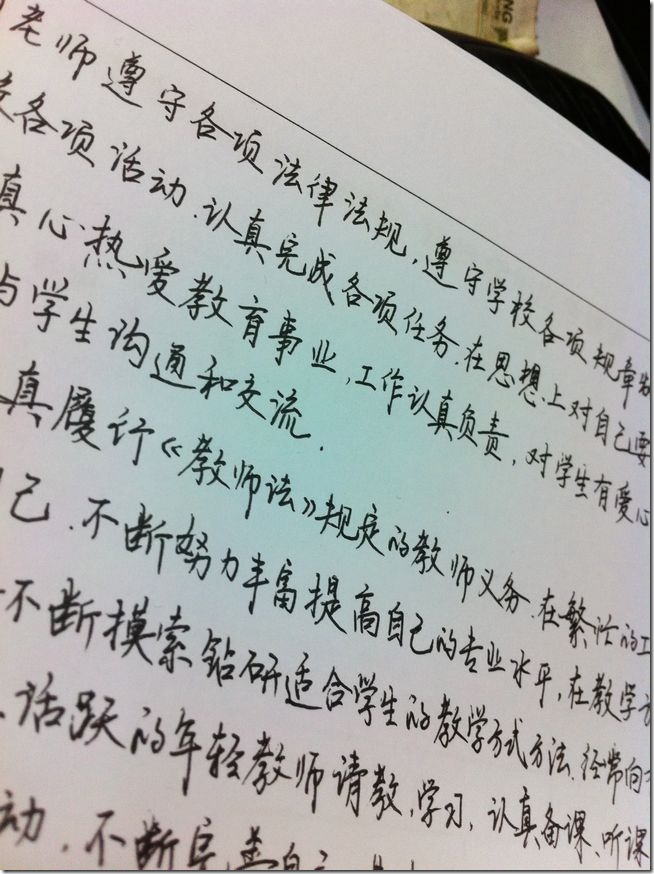 NG
老师遵守各项法律法规,遵守学校各项规章制
校各项活动.认真完成各项任务.在思想上对自己要
真心热爱教育事业,工作认真负责,对学生有爱心
与学生沟通和交流.
真履行《教师法》规定的教师义务.在繁忙的工
己.不断努力丰富提高自己的专业水平,在教学方
不断摸索钻研适合学生的教学方式方法.经常向
活跃的年轻教师请教,学习,认真备课、听课
动.不断完善自己